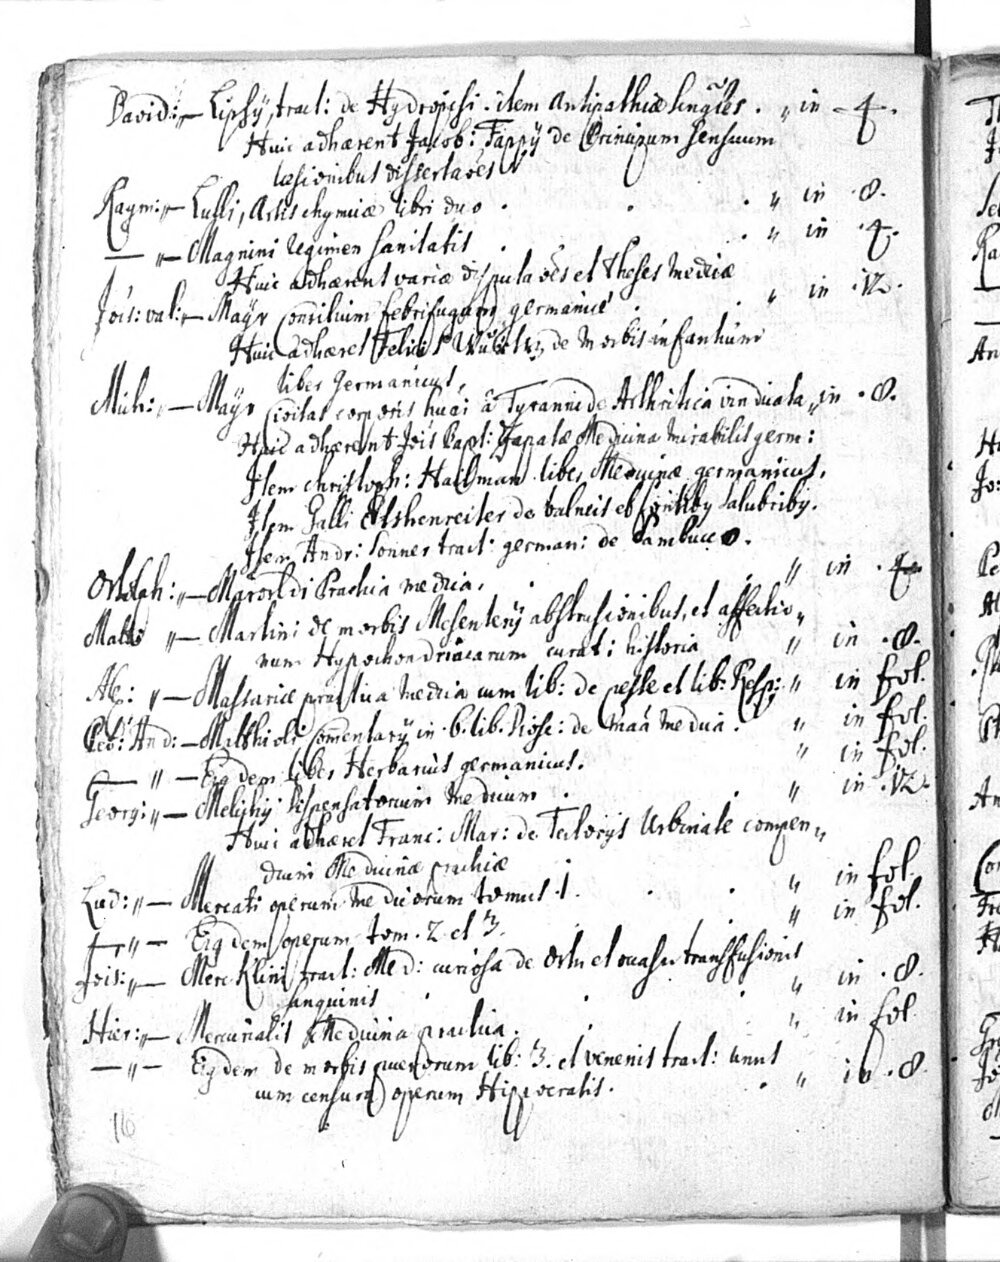 David: „— Lipsÿ, tract: de Hydropisi. item Antipathiæ singl̃es. „ in 4.
Huic adhærent Jacob: Tappÿ de Principum sensuum
læsionibus dissertaões
Raym: „— Lulli, Artis chymicæ libri duo . . . „ in 8.
— „— Magnini Regimen sanitatis . . „ in 4.
Huic adhærent variæ disputaões et Theses Medicæ
Jois: val: „— Mayr Consilium febrifugum germanicè . . „ in 12.
Huic adhæret Felicis Würtz de Morbis infantium
liber Germanicus.
Mich: „— Mayr Civitas corporis huãi â Tyrannide Arthritica vindicata „ in 8.
Huic adhærent Jois Bapt: Zapatæ Medicina mirabilis germ:
Item Christoph: liber Medicinæ germanicus.
Item Galli Etshenreiter de balneis et fontibꝯ salubribꝯ.
Item Andr: Sonner tract: german: de Sambuco.
Ortolph: „— Maroldi Practica medica. . . „ in 4
„— Martini de morbis Mesenterÿ abstrusionibus, et affectio„
num Hypochondriacarum curat: historia „ in 8.
Al: „— Massariæ practica Medica cum lib: de peste et lib: Resp: „ in fol.
Pet: And: — Matthioli Com̃entarÿ in 6. lib. Diosc: de Medica. „ in fol.
— „— Eiꝯdem liber Herbarius germanicus. „ in fol.
Georg: „— Melichÿ Dispensatorium Medicum . . „ in 12.
Huic adhæret Franc: Mar: de Urbinate compen„
dium Medicinæ practicæ
Lud: „— Mercati operum Medicorum tomus 1. . . „ in fol.
— „— Eiꝯdem operum tom. 2. et 3. „ in fol.
Jois: „— Mercklini tract: Med: curiosa de ortu et occasu transfusionis
sanguinis . . . „ in 8.
Hier: „— Mercurialis Medicina practica. . „ in fol.
— „— Eiꝯdem de morbis puerorum lib: 3. et venenis tract: unus
cum censura operum Hippocratis. . „ in 8.
16